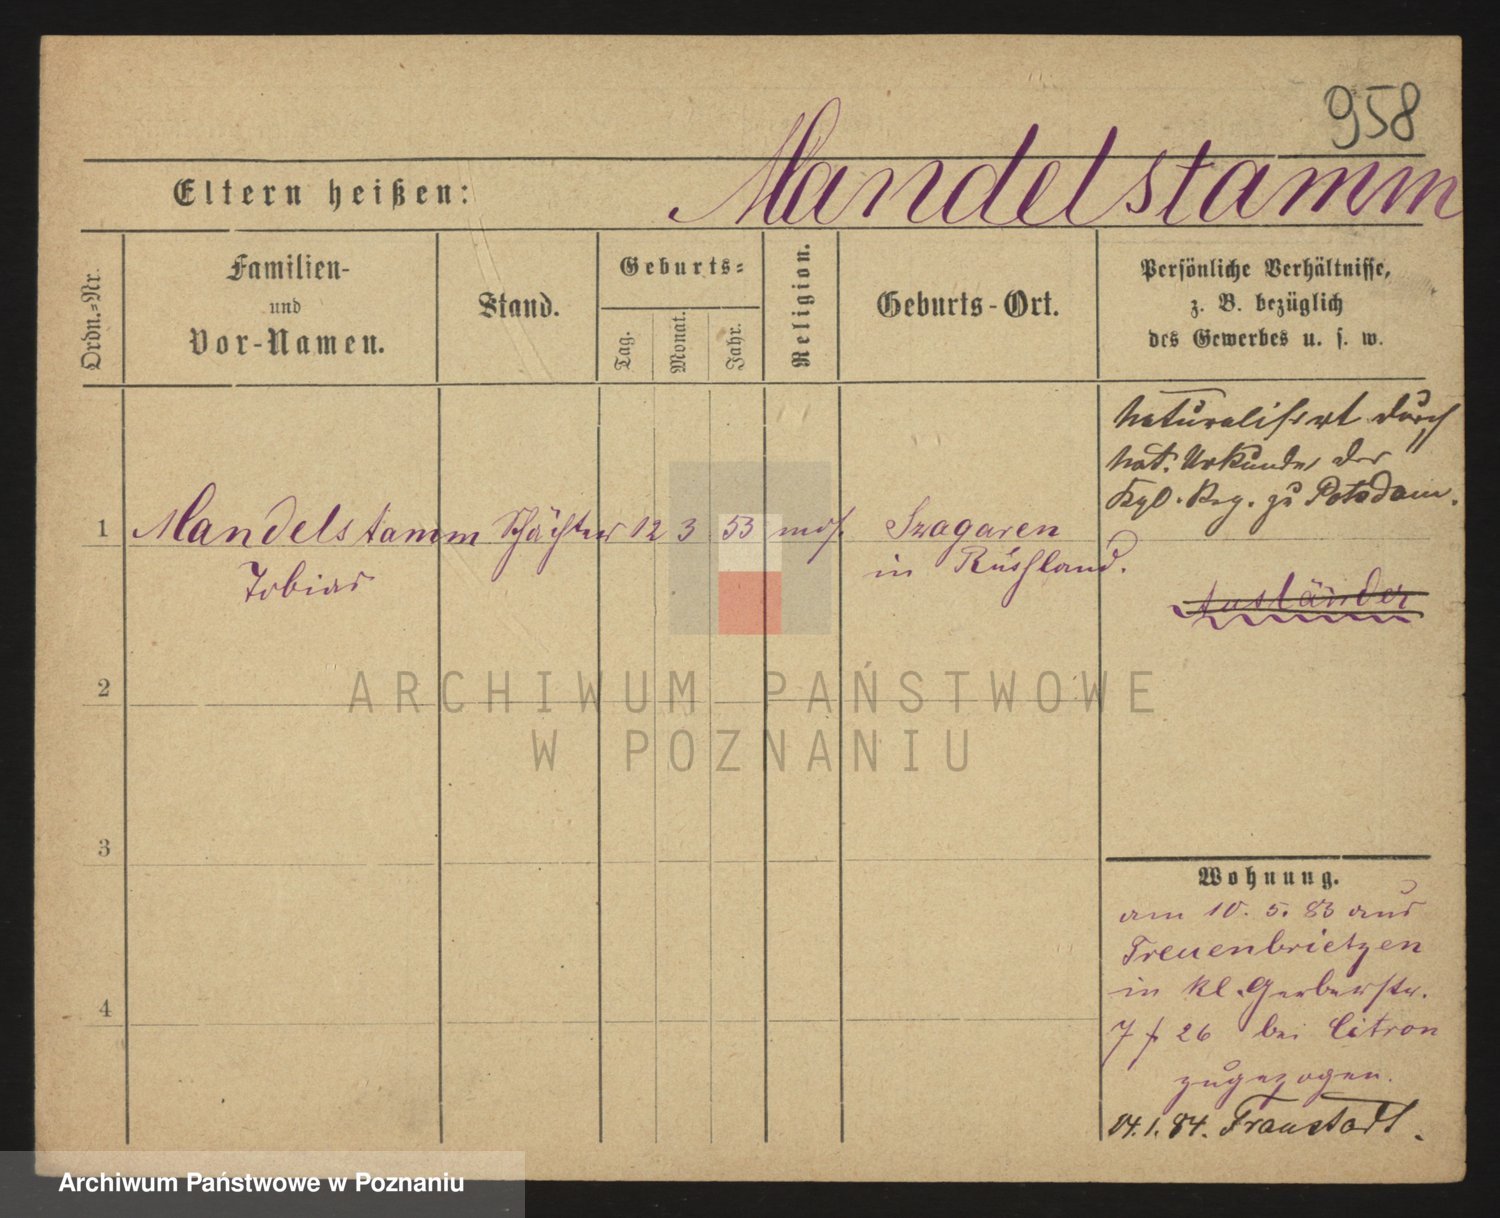 958
Eltern heißen: Mandelstamm
Ordn.-Nr.
Familien-
und
Vor-Namen.
Stand.
Geburts-
Tag.
Monat.
Jahr.
Religion.
Geburts-Ort.
Persönliche Verhältnisse,
z. B. bezüglich
des Gewerbes u. s. w.
naturalisirt durch
Nat. Urkunde der
Kgl. Reg. zu Potsdam.
1 Mandelstamm Schächter 12 3 53 mos. Szagaren
Tobias
in Russland.
Ausländer
2
3
4
Wohnung.
am 10. 5. 83 aus
Treuenbrietzen
in kl. Gerberstr.
7 f 26 bei Citron
zugezogen.
04.1.84. Fraustadt.
ARCHIWUM PAŃSTWOWE
W POZNANIU
Archiwum Państwowe w Poznaniu